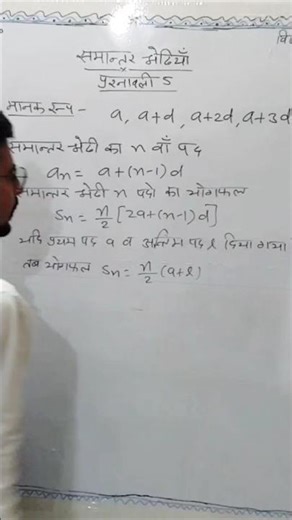 समान्तर श्रेढियाँ
प्रश्नावली 5
मानक रूप - a, a+d, a+2d, a+3d
समान्तर श्रेढी का n वाँ पद
an = a+(n-1)d
समान्तर श्रेढी n पदो का योगफल
Sn = n/2 [2a+(n-1)d]
यदि प्रथम पद a व अन्तिम पद l दिया गया
तब योगफल Sn = n/2 (a+l)